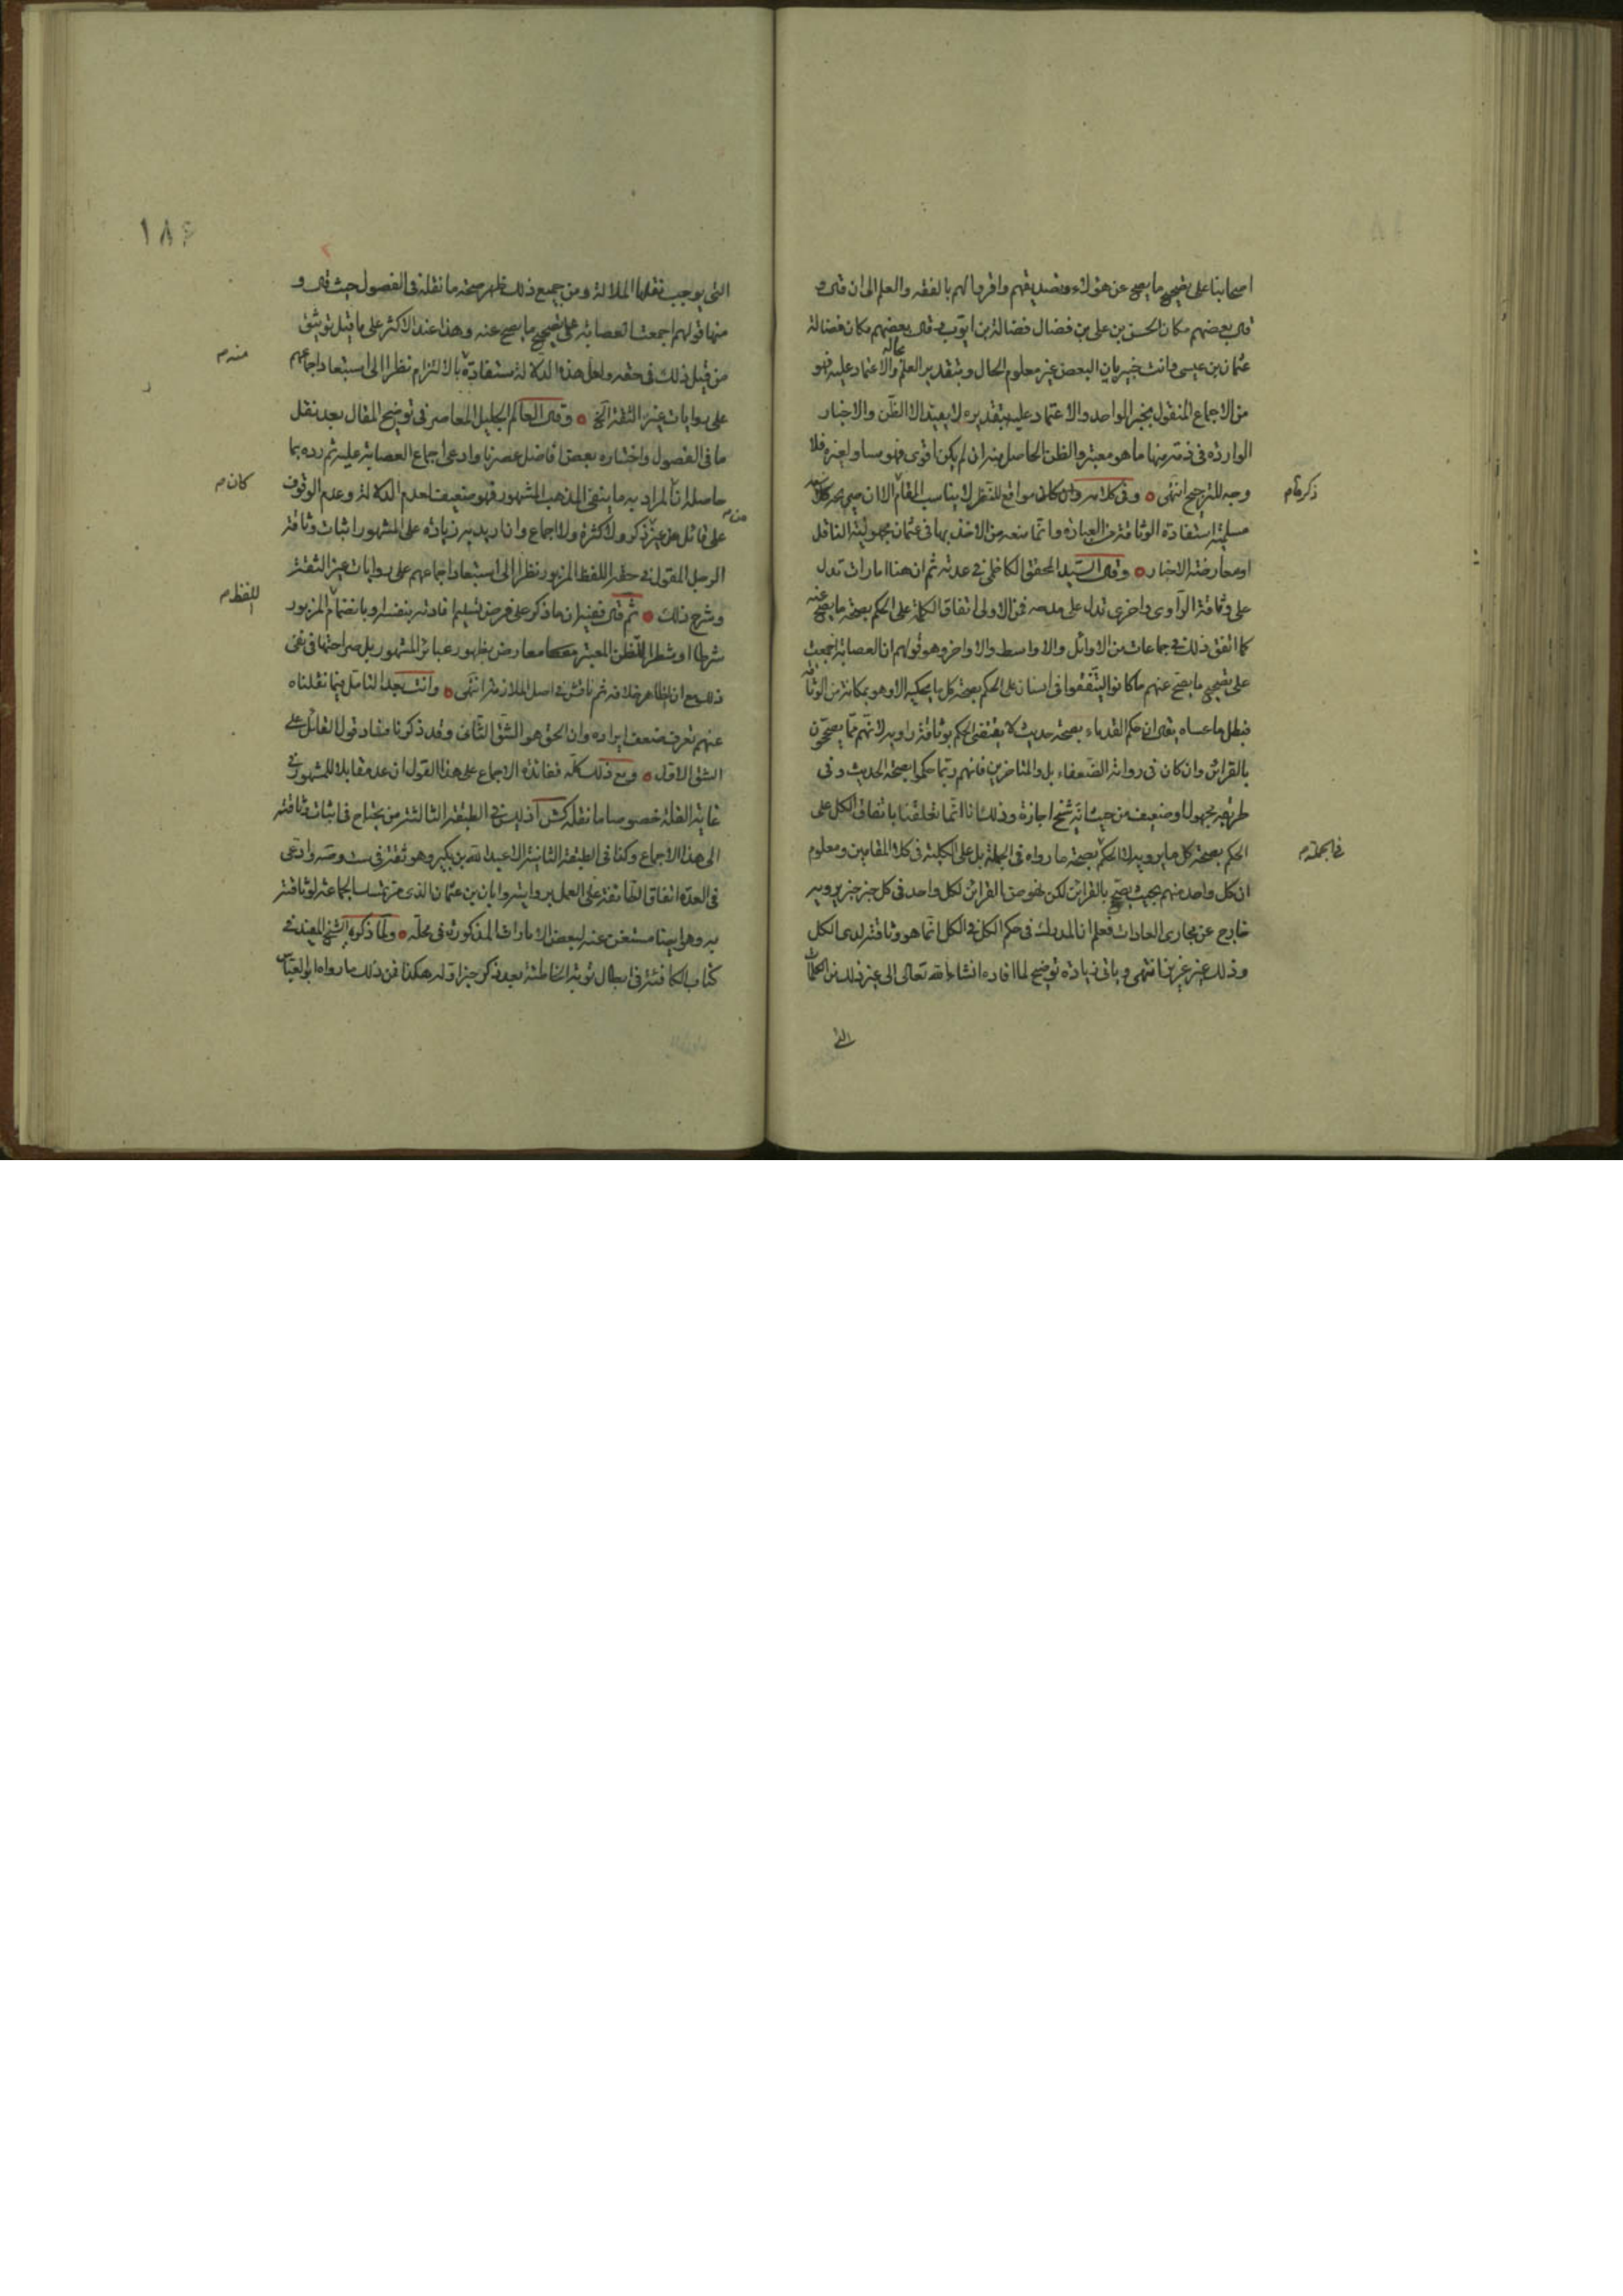 اصحابنا على تصحيح ما يصح عن هؤلاء وتصديقهم واقروا لهم بالفقه والعلم الى ان قال و
قال بعضهم مكان الحسن بن على بن فضال فضالة بن ايوب وقال بعضهم مكان فضالة
عثمان بن عيسى وانت خبير بان البعض غير معلوم الحال وبتقدير العلم بحاله والاعتماد عليه فهو
من الاجماع المنقول بخبر الواحد والاعتماد عليه بتقديره لا يفيد الا الظن والاخبار
الواردة فى ذمه منها ما هو معتبر والظن الحاصل منه ان لم يكن اقوى فهو مساو لغيره فلا
وجه للترجيح انتهى وفى كلامه وان كان مواقع للنظر لا يناسب المقام الا ان صريح كلامه
ذكره م
مسلمية استفادة الوثاقة من العبارة وانما منعه من الاخذ بها فى عثمان مجهولية الناقل
او معارضته الاخبار وقال السيد المحقق الكاظمى فى عدته ثم ان هنا امارات تدل
على وثاقة الراوى واخرى تدل على مدحه فمن الاولى اتفاق الكلمة على الحكم بصحة ما يصح عنه
كما اتفق ذلك فى جماعات من الاوائل والاواسط والاواخر وهو قولهم ان العصابة اجمعت
على تصحيح ما يصح عنهم ما كانوا ليتفقوا فى انسان على الحكم بصحة كل ما يحكيه الا وهو بمكانة من الوثاقة
فبطل ما عساه يقال ان حكم القدماء بصحة حديث لا يقتضى الحكم بوثاقة راويه لانهم مما يصححون
بالقرائن وان كان فى رواته الضعفاء بل والمتاخرين فانهم ربما حكموا بصحة الحديث وفى
طريقه مجهول او ضعيف من حيث انه شيخ اجازة وذلك انا انما تعلقنا باتفاق الكل على
الحكم بصحة كل ما يرويه لا الحكم بصحة ما رواه فى الجملة بل على الكلية فى كلا المقامين ومعلوم
فى الجملة م
ان كل واحد منهم بحيث يصحح بالقرائن لكن خصوص القرائن لكل واحد فى كل خبر خبر يرويه
خارج عن مجارى العادات فعلم ان المدرك فى حكم الكل فى الكل انما هو وثاقته لدى الكل
وذلك غير عزيز انتهى وياتى زيادة توضيح لما افاده انشاء الله تعالى الى غير ذلك من الكلمات
التى
١٨٤
التى يوجب نقلها الملالة ومن جميع ذلك ظهر صحة ما نقله فى الفصول حيث قال و
منها قولهم اجمعت العصابة على تصحيح ما يصح عنه وهذا عند الاكثر على ما قيل توثيق
من قيل ذلك فى حقه ولعل هذه الدلالة مستفادة بالالتزام نظرا الى استبعاد اجماعهم
منه م
على روايات غير الثقة الخ وقال العالم الجليل المعاصر فى توضيح المقال بعد نقل
ما فى الفصول واختاره بعض افاضل عصرنا وادعى اجماع العصابة عليه ثم رده بما
حاصله ان المراد به ما ينفى المذهب المشهور فهو ضعيف لعدم الدلالة وعدم الوقوف
كان م
على قائل من غير ذكر ولا كثرة ولا اجماع وان اريد به زيادة على المشهور اثبات وثاقة
من م
الرجل المقول فى حقه اللفظ المزبور نظرا الى استبعاد اجماعهم على روايات غير الثقة
وشرح ذلك ثم قال ففيه ان ما ذكر على فرض تسليم افادته بنفسه او بانضمام المزبور
اللفظ م
شرطا او شطرا للظن المعتبر معارض بظهور عبائر المشهور بل صراحتها فى نفى
ذلك مع ان الظاهر خلافه ثم ناقش فى اصل الملازمة انتهى وانت بعد التامل فيما نقلناه
عنهم تعرف ضعف ايراده وان الحق هو الشق الثانى وقد ذكرنا مفاد قول القائل على
الشق الاول ومع ذلك كله ففائدة الاجماع على هذا القول ان عد مقابلا للمشهور فى
غاية القلة خصوصا ما نقله كش اذ ليس فى الطبقة الثالثة من يحتاج فى اثبات وثاقته
الى هذا الاجماع وكذا فى الطبقة الثانية الا عبد الله بن بكير وهو ثقة فى ست وصه وادعى
فى العدة اتفاق الطائفة على العمل بروايته وابان بن عثمان الذى تمسك الجماعة لوثاقته
به وهو ايضا مستغن عنه لبعض الامارات المذكورة فى محله ولما ذكره الشيخ المفيد فى
كتاب الكافئة فى ابطال توبة الخاطئة بعد ذكر خبر اوله هكذا فمن ذلك ما رواه ابو العباس